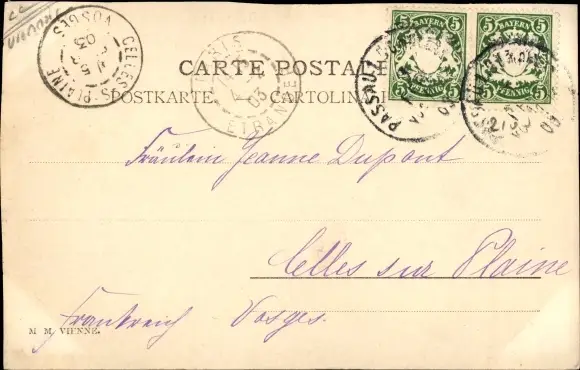 CELLES-S-PLAINE
VOSGES
03
ETRANGER
03
BAYERN
5 5
PFENNIG
BAYERN
5 5
PFENNIG
PASSAU
CARTE POSTALE
POSTKARTE. CARTOLINA
Fräulein Jeanne Dupont
Celles sur Plaine
Frankreich Vosges.
M. M. VIENNE.